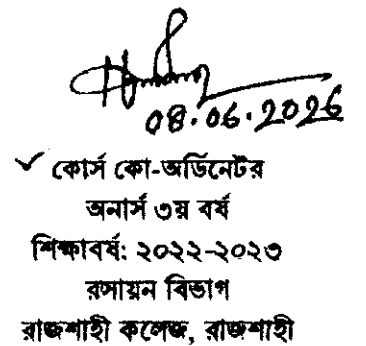 08.06.2026
✓ কোর্স কো-অর্ডিনেটর
অনার্স ৩য় বর্ষ
শিক্ষাবর্ষ: ২০২২-২০২৩
রসায়ন বিভাগ
রাজশাহী কলেজ, রাজশাহী